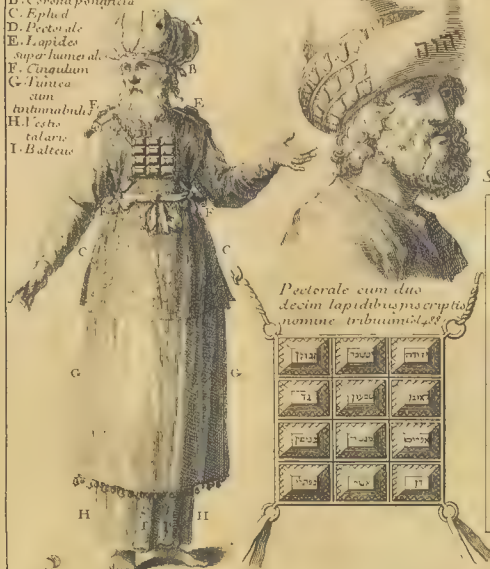 B. Corona pontificia
C. Ephod
D. Pectorale
E. Lapides
super humeral
F. Cingulum
G. Tunica
cum
tintinnabulis
H. Vestis
talaris
I. Balteus
A
B
E
F
C C
G G
H H
יהוה
Pectorale cum duo
decim lapidibus inscriptis
nomine tribuum Col 488
יהודה יששכר זבולן
ראובן שמעון גד
אפרים מנשה בנימן
דן אשר נפתלי